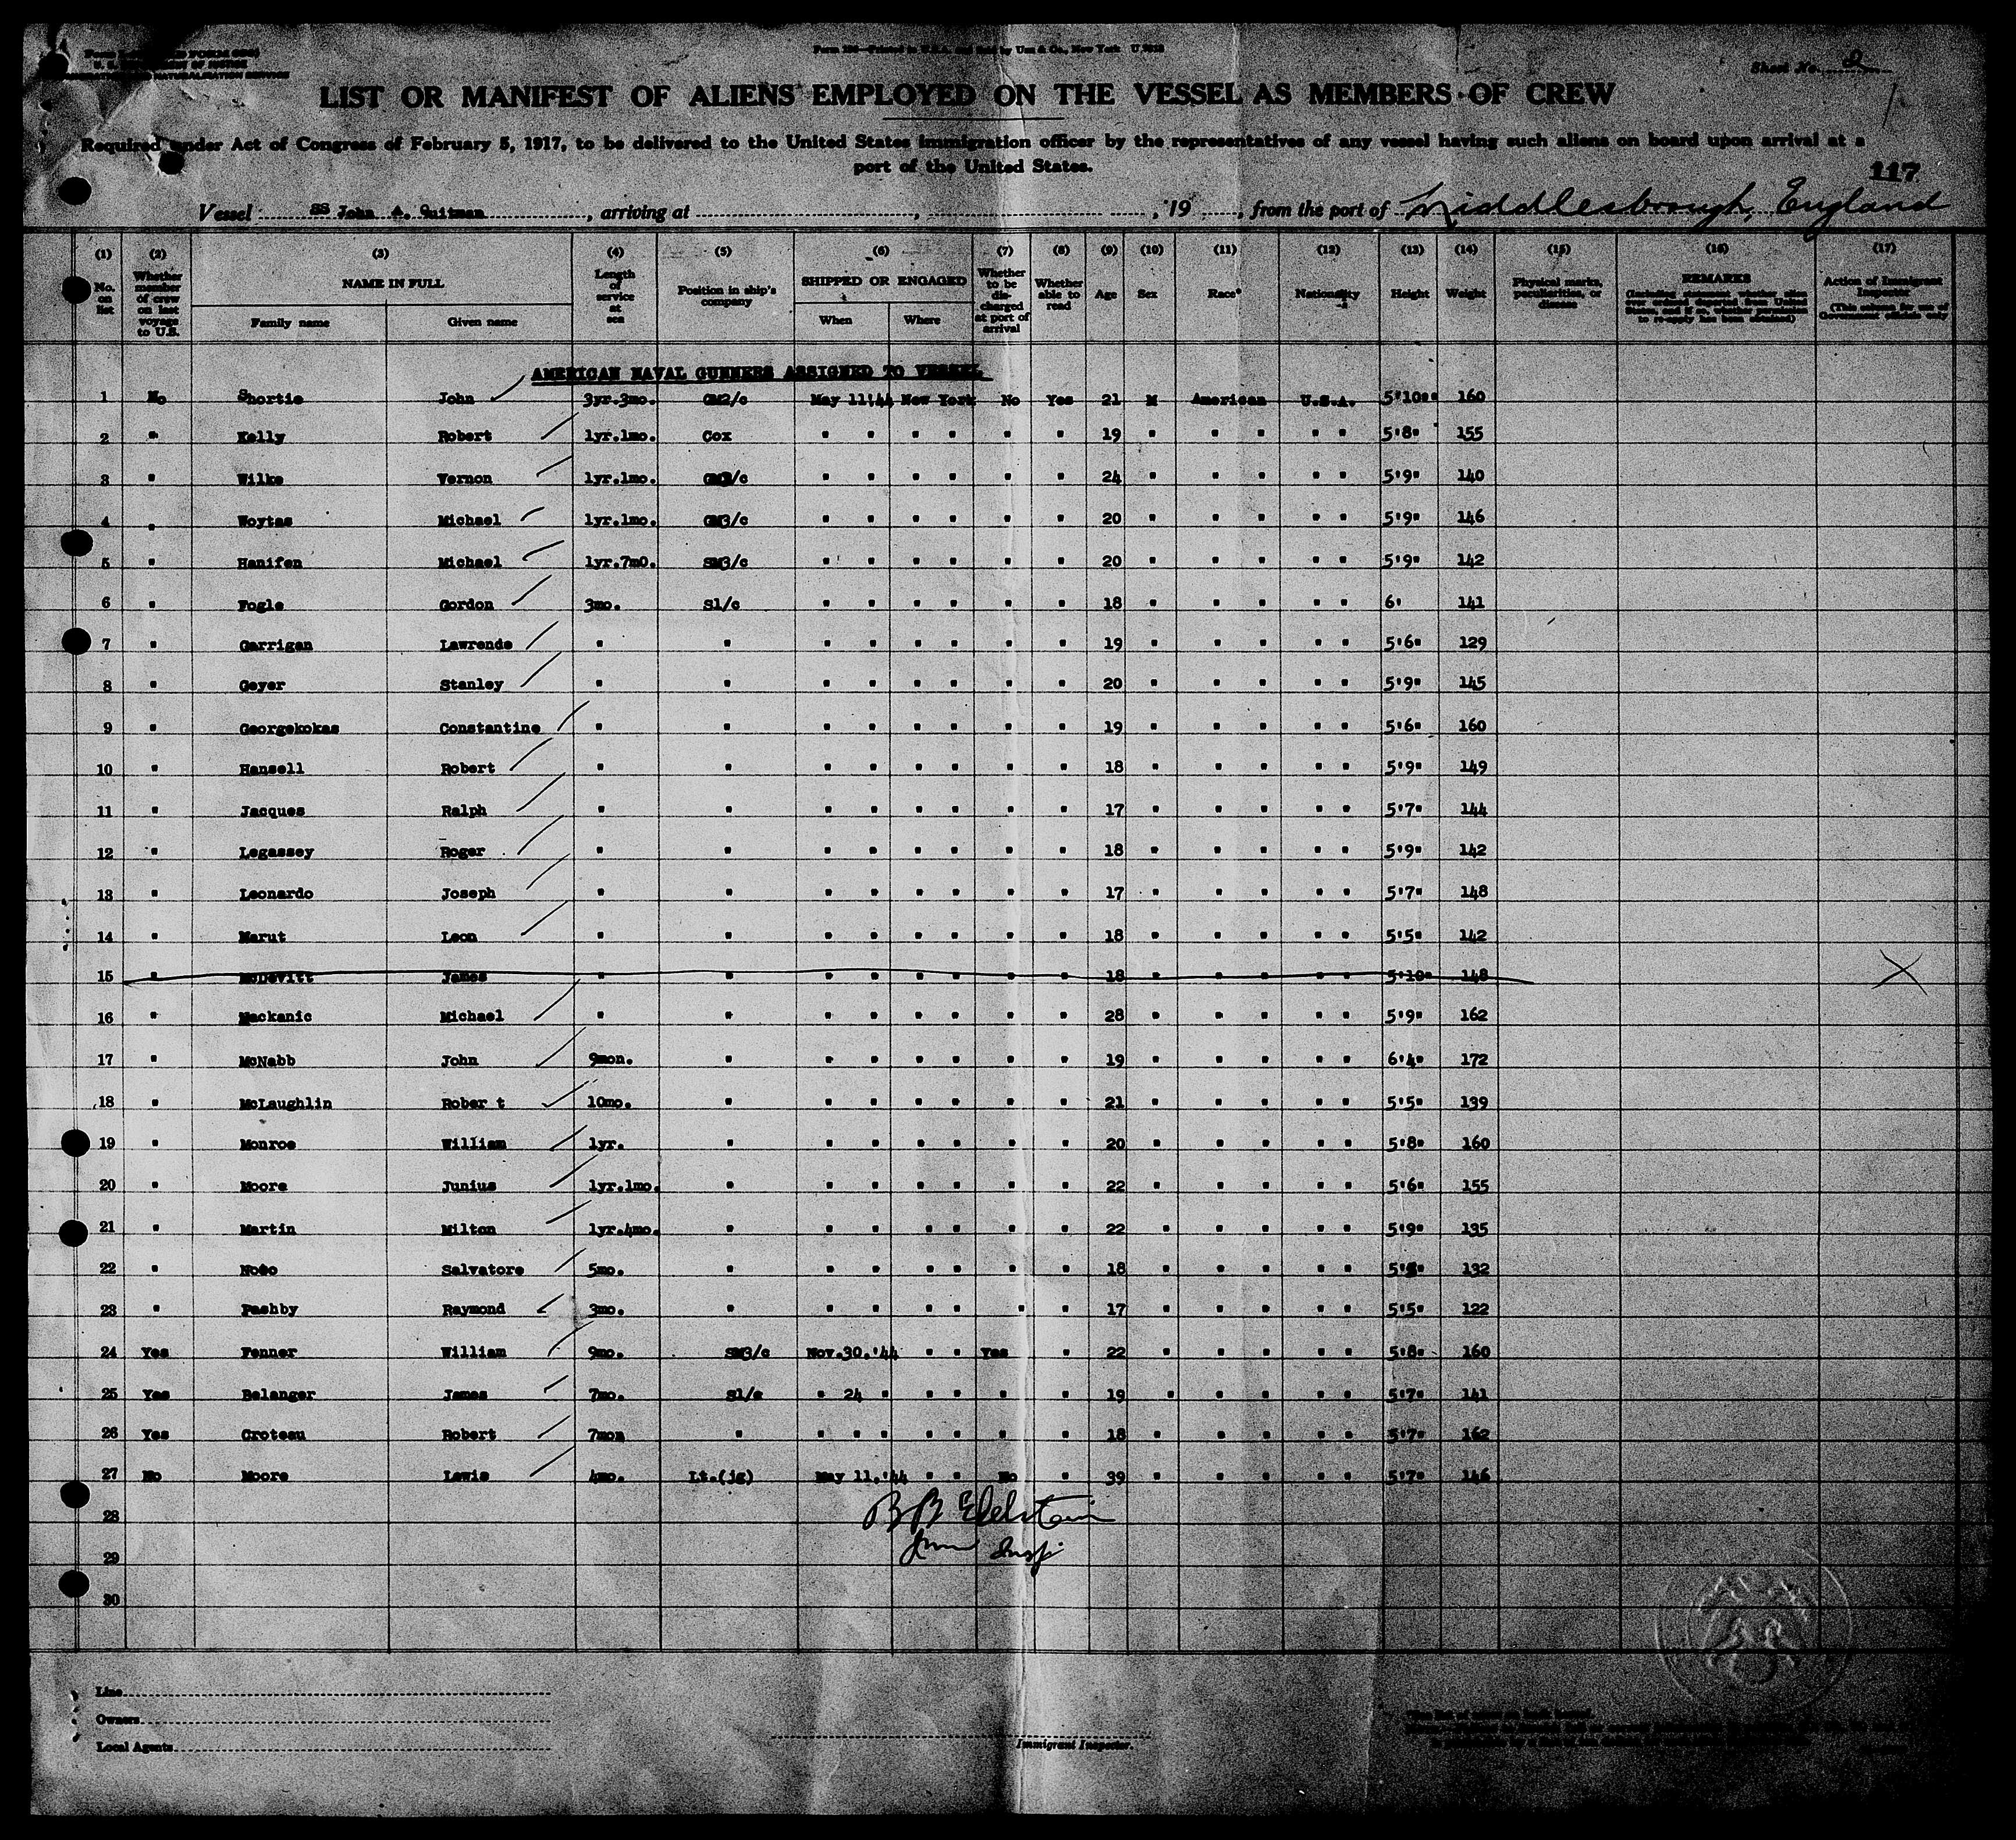 Form 296—Printed in U.S.A. and Sold by Unz & Co., New York
U. S. DEPARTMENT OF JUSTICE
IMMIGRATION AND NATURALIZATION SERVICE
Sheet No. 2
LIST OR MANIFEST OF ALIENS EMPLOYED ON THE VESSEL AS MEMBERS OF CREW
Required under Act of Congress of February 5, 1917, to be delivered to the United States immigration officer by the representatives of any vessel having such aliens on board upon arrival at a
port of the United States.
117
Vessel SS John A. Quitman, arriving at , , 19 , from the port of Middlesbrough, England
(1) (2) (3) (4) (5) (6) (7) (8) (9) (10) (11) (12) (13) (14) (15) (16) (17)
No. on list Whether member of crew on last voyage to U.S. NAME IN FULL Family name Given name Length of service at sea Position in ship's company SHIPPED OR ENGAGED When Where Whether to be discharged at port of arrival Whether able to read Age Sex Race* Nationality Height Weight Physical marks, peculiarities, or disease REMARKS (Including statement whether alien ever ordered deported from United States, and if so, whether permission to re-apply has been obtained) Action of Immigrant Inspector (This column for use of Government officials only)
AMERICAN NAVAL GUNNERS ASSIGNED TO VESSEL
1 No Shortie John 3yr.3mo. GM2/c May 11'44 New York No Yes 21 M American U.S.A. 5'10" 160
2 " Kelly Robert 1yr.1mo. Cox " " " " " " 19 " " " " " 5'8" 155
3 " Wilke Vernon 1yr.1mo. GM3/c " " " " " " 24 " " " " " 5'9" 140
4 " Woytas Michael 1yr.1mo. GM3/c " " " " " " 20 " " " " " 5'9" 146
5 " Hanifen Michael 1yr.7mO. SM3/c " " " " " " 20 " " " " " 5'9" 142
6 " Fogle Gordon 3mo. S1/c " " " " " " 18 " " " " " 6' 141
7 " Garrigan Lawrende " " " " " " " " 19 " " " " " 5'6" 129
8 " Geyer Stanley " " " " " " " " 20 " " " " " 5'9" 145
9 " Georgekokas Constantine " " " " " " " " 19 " " " " " 5'6" 160
10 " Hansell Robert " " " " " " " " 18 " " " " " 5'9" 149
11 " Jacques Ralph " " " " " " " " 17 " " " " " 5'7" 144
12 " Legassey Roger " " " " " " " " 18 " " " " " 5'9" 142
13 " Leonardo Joseph " " " " " " " " 17 " " " " " 5'7" 148
14 " Marut Leon " " " " " " " " 18 " " " " " 5'5" 142
15 " McDevitt James " " " " " " " " 18 " " " " " 5'10" 148 X
16 " Mackanic Michael " " " " " " " " 28 " " " " " 5'9" 162
17 " McNabb John 9mon. " " " " " " " 19 " " " " " 6'4" 172
18 " McLaughlin Rober t 10mo. " " " " " " " 21 " " " " " 5'5" 139
19 " Monroe William 1yr. " " " " " " " 20 " " " " " 5'8" 160
20 " Moore Junius 1yr.1mo. " " " " " " " 22 " " " " " 5'6" 155
21 " Martin Milton 1yr.4mo. " " " " " " " 22 " " " " " 5'9" 135
22 " Salvatore 5mo. " " " " " " " 18 " " " " " 132
23 " Pashby Raymond 3mo. " " " " " " " 17 " " " " " 5'5" 122
24 Yes Fenner William 9mo. SM3/c Nov.30.'44 " " Yes " 22 " " " " " 5'8" 160
25 Yes Belanger James 7mo. S1/c " 24 " " " " " 19 " " " " " 5'7" 141
26 Yes Croteau Robert 7mon " " " " " " " " 18 " " " " " 5'7" 162
27 No Moore Lewis 4mo. Lt.(jg) May 11.'44 " " No " 39 " " " " " 5'7" 146
28 B B Edelstein
29 Imm Insp
30
Line
Owners
Local Agents
Immigrant Inspector.